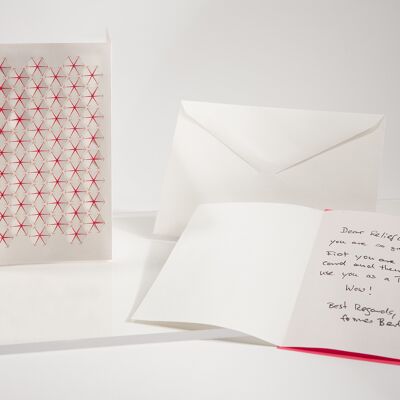 Dear Relief
you are so
First you are
card and then
use you as a T
Wow!
Best Regards,
former Best